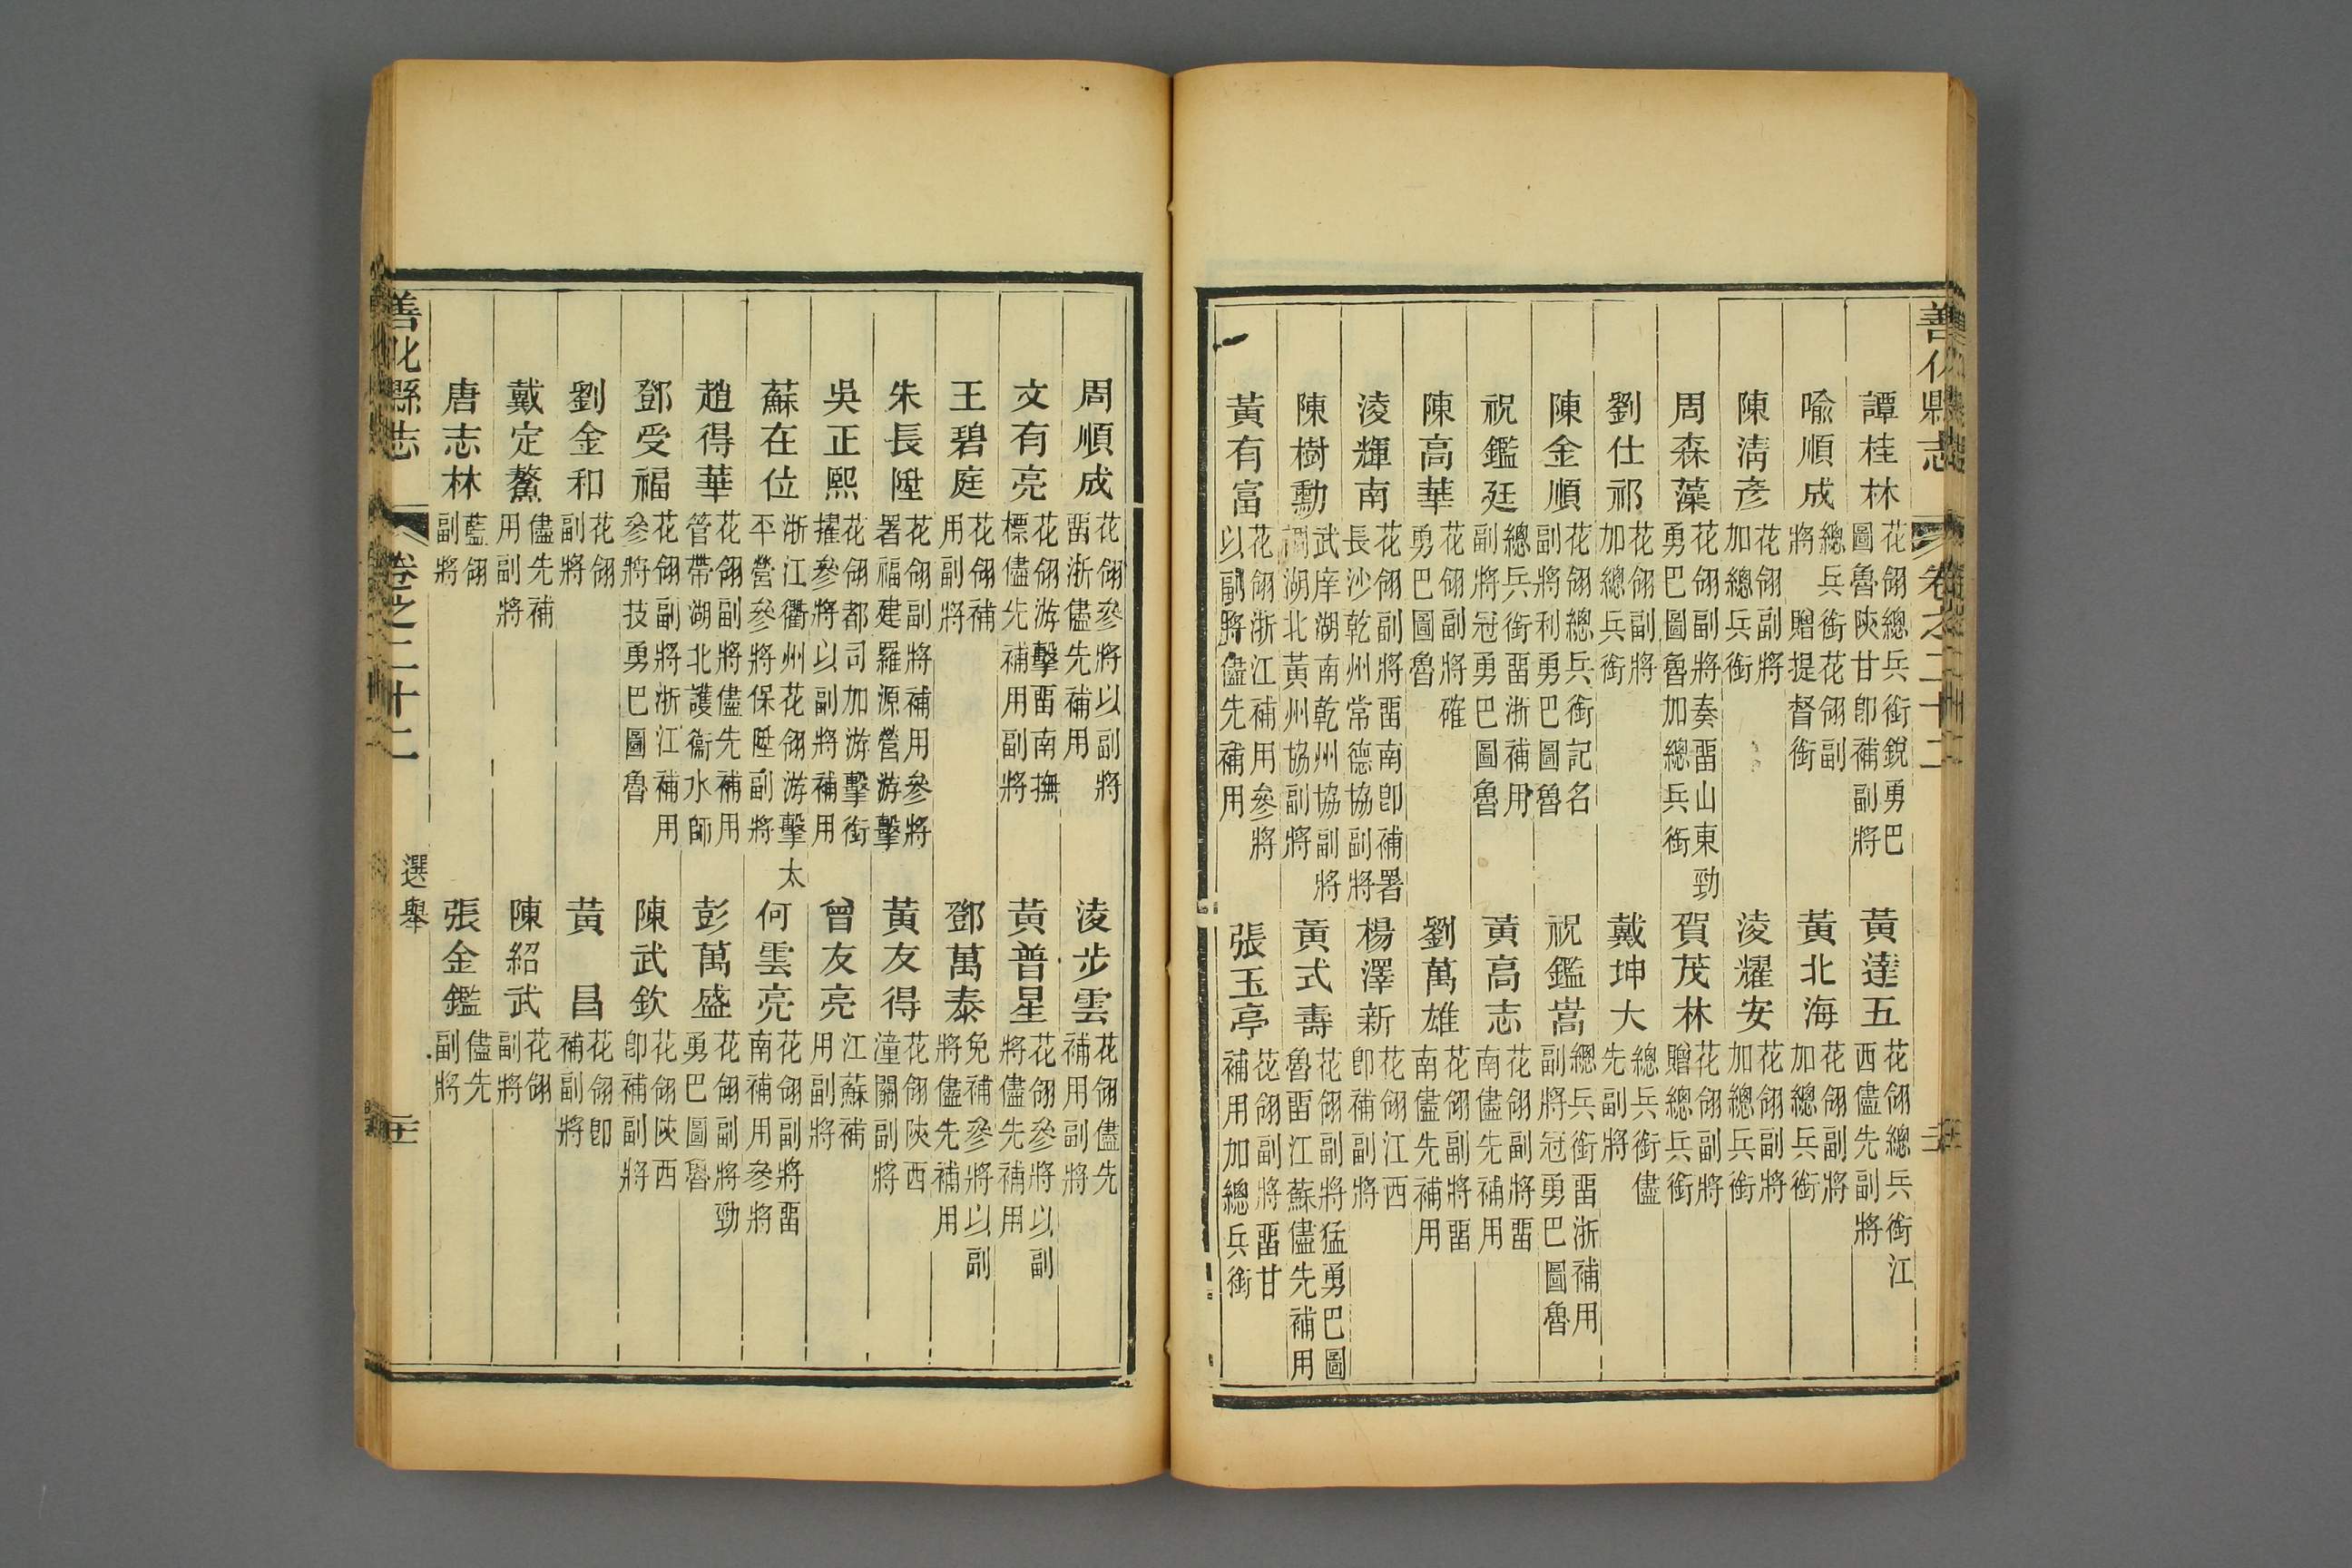 善化縣志
卷之二十二
譚桂林 花翎總兵銜銳勇巴圖魯陝甘卽補副將
黃達五 花翎總兵銜江西儘先副將
喩順成 總兵銜花翎副將 贈提督銜
黃北海 花翎副將加總兵銜
陳淸彥 花翎副將加總兵銜
淩耀安 花翎副將加總兵銜
周森藻 花翎副將奏畱山東勁勇巴圖魯加總兵銜
賀茂林 花翎副將贈總兵銜
劉仕祁 花翎副將加總兵銜
戴坤大 總兵銜儘先副將
陳金順 花翎總兵銜記名副將利勇巴圖魯
祝鑑嵩 總兵銜畱浙補用副將冠勇巴圖魯
祝鑑廷 總兵銜畱浙補用副將冠勇巴圖魯
黃高志 花翎副將畱南儘先補用
陳高華 花翎副將確勇巴圖魯
劉萬雄 花翎副將畱南儘先補用
淩輝南 花翎副將畱南卽補署長沙乾州常德協副將
楊澤新 花翎江西卽補副將
陳樹勳 武庠湖南乾州協副將調湖北黃州協副將
黃式壽 花翎副將猛勇巴圖魯畱江蘇儘先補用
黃有富 花翎浙江補用參將以副將儘先補用
張玉亭 花翎副將畱甘補用加總兵銜
周順成 花翎參將以副將畱浙儘先補用
淩步雲 花翎儘先補用副將
文有亮 花翎游擊畱南撫標儘先補用副將
黃普星 花翎參將以副將儘先補用
王碧庭 花翎補用副將
鄧萬泰 免補參將以副將儘先補用
朱長陞 花翎副將補用參將署福建羅源營游擊
黃友得 花翎陝西潼關副將
吳正熙 花翎都司加游擊銜擢參將以副將補用
曾友亮 江蘇補用副將
蘇在位 浙江衢州花翎游擊太平營參將保陞副將
何雲亮 花翎副將畱南補用參將
趙得華 花翎副將儘先補用管帶湖北護衞水師
彭萬盛 花翎副將勁勇巴圖魯
鄧受福 花翎副將浙江補用參將技勇巴圖魯
陳武欽 花翎陝西卽補副將
劉金和 花翎副將
黃 昌 花翎卽補副將
戴定鰲 儘先補用副將
陳紹武 花翎副將
唐志林 藍翎副將
張金鑑 儘先副將
善化縣志
卷之二十二
選舉